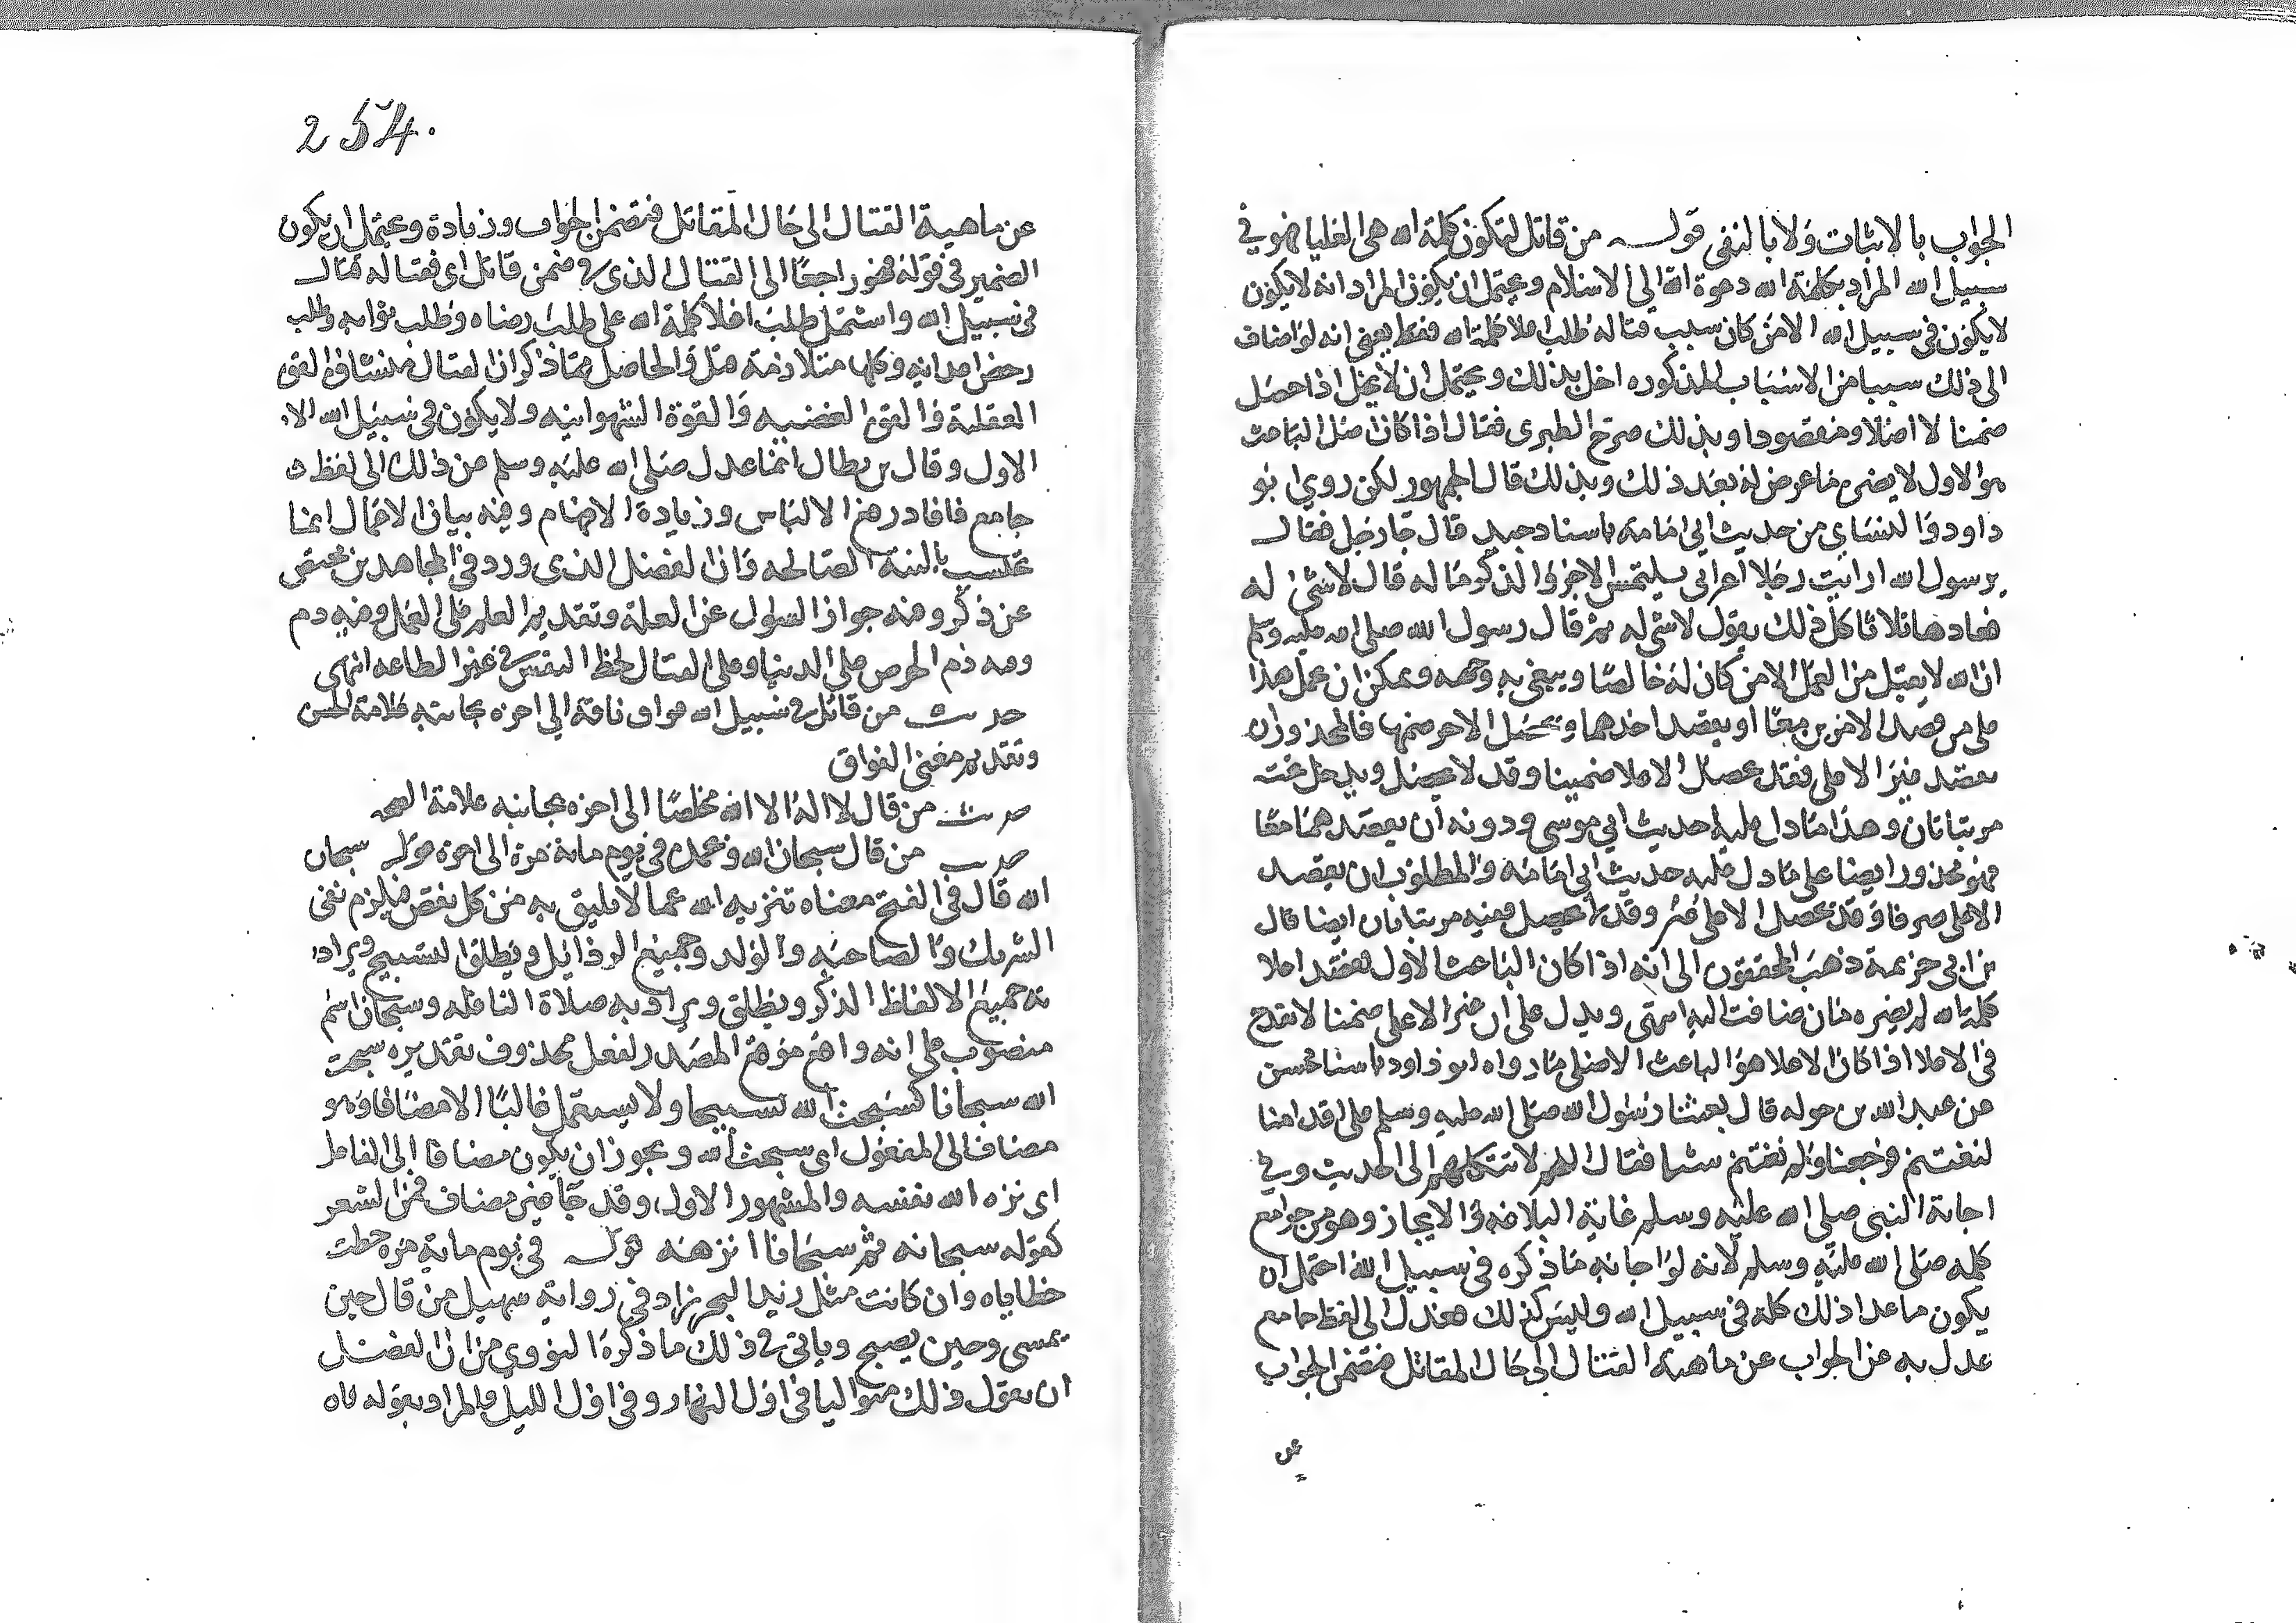 الجواب بالاثبات ولا بالنفى قوله من قاتل لتكون كلمة الله هى العليا فهو في
سبيل الله المراد بكلمة الله دعوة الله الى الاسلام ويحتمل ان يكون المراد انه لا يكون
لا يكون في سبيل الله الا من كان سبب قتاله طلب اعلا كلمة الله فقط يعنى انه لو اضاف
الى ذلك سببا من الاسباب المذكوره اخل بذلك ويحتمل ان لا يخل اذا حصل
ضمنا لا اصلا ومقصودا وبذلك صرح الطبرى فقال اذا كان اصل الباعث
هو الاول لا يضره ما عرض له بعد ذلك وبذلك قال الجمهور لكن روي ابو
داود والنساى من حديث ابى امامة باسناد جيد قال جا رجل فقال
يرسول الله ارايت رجلا اعزانى يلتمس الاجر والذكر ما له قال لا شئ له
فعادها ثلاثا كل ذلك يقول لا شى له ثم قال رسول الله صلى الله عليه وسلم
ان الله لا يقبل من العمل الا من كان له خالصا ويبغى به وجهه ويمكن ان عمل هذا
على من قصد الامرين معا او يقصد احدهما ويحصل الاخر ضمنها فالمحذور ان
يقصد غير الاعلى فقد يحصل الاعلا ضمينا وقد لا يحصل ويدخل تحته
مرتبتانان وهذا ما دل عليه حديث ابي موسى ودونه ان يقصدهما معا
فهو محذور ايضا على ما دل عليه حديث ابي امامه والمطلوب ان يقصد
الاعلى صرفا وقد يحصل الاعلى غير وقد لا يحصل ففيه مرتبتانان ايضا قال
بن ابى حزيمة ذهب المحققون الى انه اذا كان الباعث الاول يقصد اعلا
كلمة الله لم يضره فان ضافت اليه انتهى ويدل على ان غير الاعلى ضمنا لا يقدح
في الاعلا اذا كان الاعلا هو الباعث الاصلى ما رواه ابو داود باسناد حسن
عن عبد الله بن حوله قال بعثنا رسول الله صلى الله عليه وسلم على اقدامنا
لنغتنم فرجعنا ولم نغتنم شئا فقال اللهم لا تتكلهم الى الحديث وفي
اجابة النبي صلى الله عليه وسلم غاية البلاغه والايجاز وهو من جوامع
كلمه صلى الله عليه وسلم لانه لو اجابه ما ذكره في سبيل الله احتمل ان
يكون ما عدا ذلك كله في سبيل الله وليس كذلك فعدل الى لفظ جامع
عدل به عن الجواب عن ماهية القتال الى حال المقاتل فتضمن الجواب
عن
254.
عن ماهية القتال الى حال المقاتل فتضمن الجواب وزيادة ويحتمل ان يكون
الضمير في قوله فهو راجعا الى القتال الذى في ضمن قاتل اى فقتاله قتال
في سبيل الله واشتمل طلب اعلا كلمة الله على طلب رضاه وطلب ثوابه وطلب
رحض اعدائه وكلها متلازمة مثل والحاصل مما ذكر ان القتال منشاؤه القوة
العقلية والقوة الغضبيه والقوة الشهوانيه ولا يكون في سبيل الله الا
الاول وقال بن بطال انما عدل صلى الله عليه وسلم عن ذلك الى لفظ
جامع فافاد رفع الالباس وزيادة الافهام وفيه بيان الاعمال انما
تحتسب بالنية الصالحه وان الفضل الذى ورد في المجاهدين مختص
عن ذكر ومنه جواز السؤل عن العلة وتقديم العلم على العمل وفيه دم
وفيه ذم الحرص على الدينا وعلى القتال لحظ النفس في غير الطاعه انتهى
حديث من قاتل في سبيل الله فواق ناقة الي اخره بجانبه علامة الحسن
وتقدم معنى الفواق
حديث من قال لا اله الا الله مخلصا الى اخره بجانبه علامة الصحه
حديث من قال سبحان الله وبحمده في يوم ماية مرة الى اخره قوله سبحان
الله قال في الفتح معناه تنزيه الله عما لا يليق به من كل نقص فيلزم نفى
الشريك والصاحبه والولد وجميع الرذايل ويطلق التسبيح ويراد
به جميع الالفاظ الذكر ويطلق ويراد به صلاة النافله وسبحان اسم
منصوب على انه واقع موقع المصدر لفعل محذوف تقديره سبحت
الله سبحانا كسبحت الله تسبيحا ولا يستعمل غالبا الا مضافا وهو
مضاف الى المفعول اى سبحت الله ويجوز ان يكون مضافا الى الفاعل
اى نزه الله نفسه والمشهور الاول وقد جا غير مضاف في الشعر
كقوله سبحانه ثم سبحانا انزهه قوله في يوم ماية مره حطت
خطاياه وان كانت مثل زبد البحر زاد في رواية سهيل من قال حين
يمسى وحين يصبح وياتى في ذلك ما ذكره النووي من ان الفضل
ان يقول ذلك متواليا في اول النهار وفي اول الليل والمراد بقوله